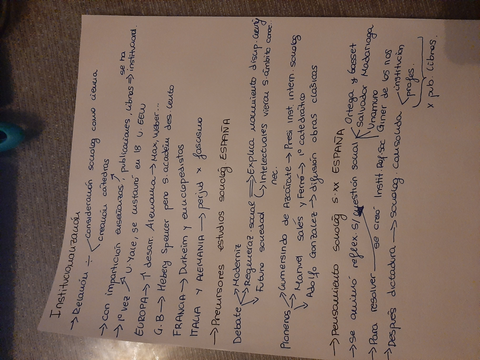 Institucionalización
→ Relación ÷ consideración sociolog como ciencia
creación cátedras
→ con impartición enseñanzas, publicaciones, libros ⇒ se ha institucional
→ 1ª vez → U. Yale, se instauró en 18 U. EEUU
EUROPA → 1º desarr. Alemania → Max Weber...
G.B → Spencer pero s academ des lento
FRANCIA → Durkeim y enciclopedistas
ITALIA Y ALEMANIA → perjud x fascismo
→ Precursores estudios sociolog ESPAÑA
Debate → Moderniz
→ Regenerac social → Explica nacimiento discip
Futuro sociedad → Intelectuales vieron s ámbito
nec.
Pioneros → Gumersindo de Azcárate → Presi inst intern. sociolog
→ Manuel Sales y Ferré → 1º catedrático
Adolfo González → difusión obras clásicas
→ Pensamiento sociolog s. XX ESPAÑA
→ se anuncia reflex s/ cuestión social
Ortega y Gasset
Salvador Madariaga
Unamuno
Giner de los Ríos
→ Para resolver → se creó Instit Ref. soc
→ Después dictadura → sociolog consolida
institución
profes
x pub. libros.